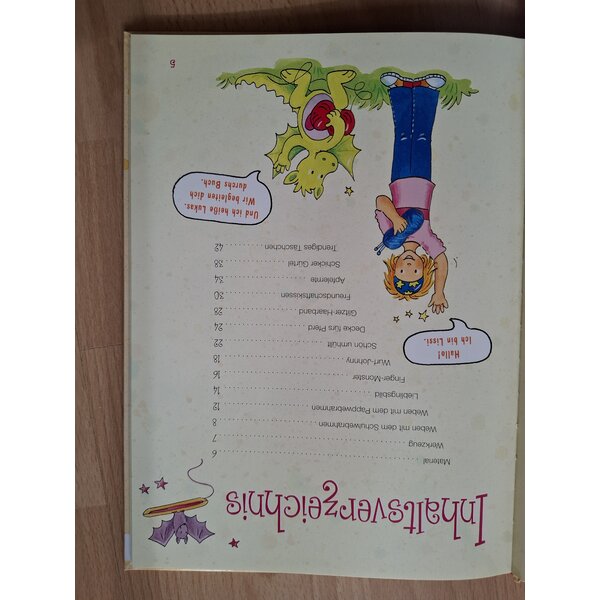 Inhaltsverzeichnis
Material 6
Werkzeug 7
Weben mit dem Schulwebrahmen 8
Weben mit dem Pappwebrahmen 12
Lieblingsbild 14
Finger-Monster 16
Wurf-Johnny 18
Schön umhüllt 22
Decke fürs Pferd 24
Glitzer-Haarband 28
Freundschaftskissen 30
Apfelernte 34
Schicker Gürtel 38
Trendiges Täschchen 42
Hallo!
Ich bin Lissi.
Und ich heiße Lukas.
Wir begleiten dich
durchs Buch.
5